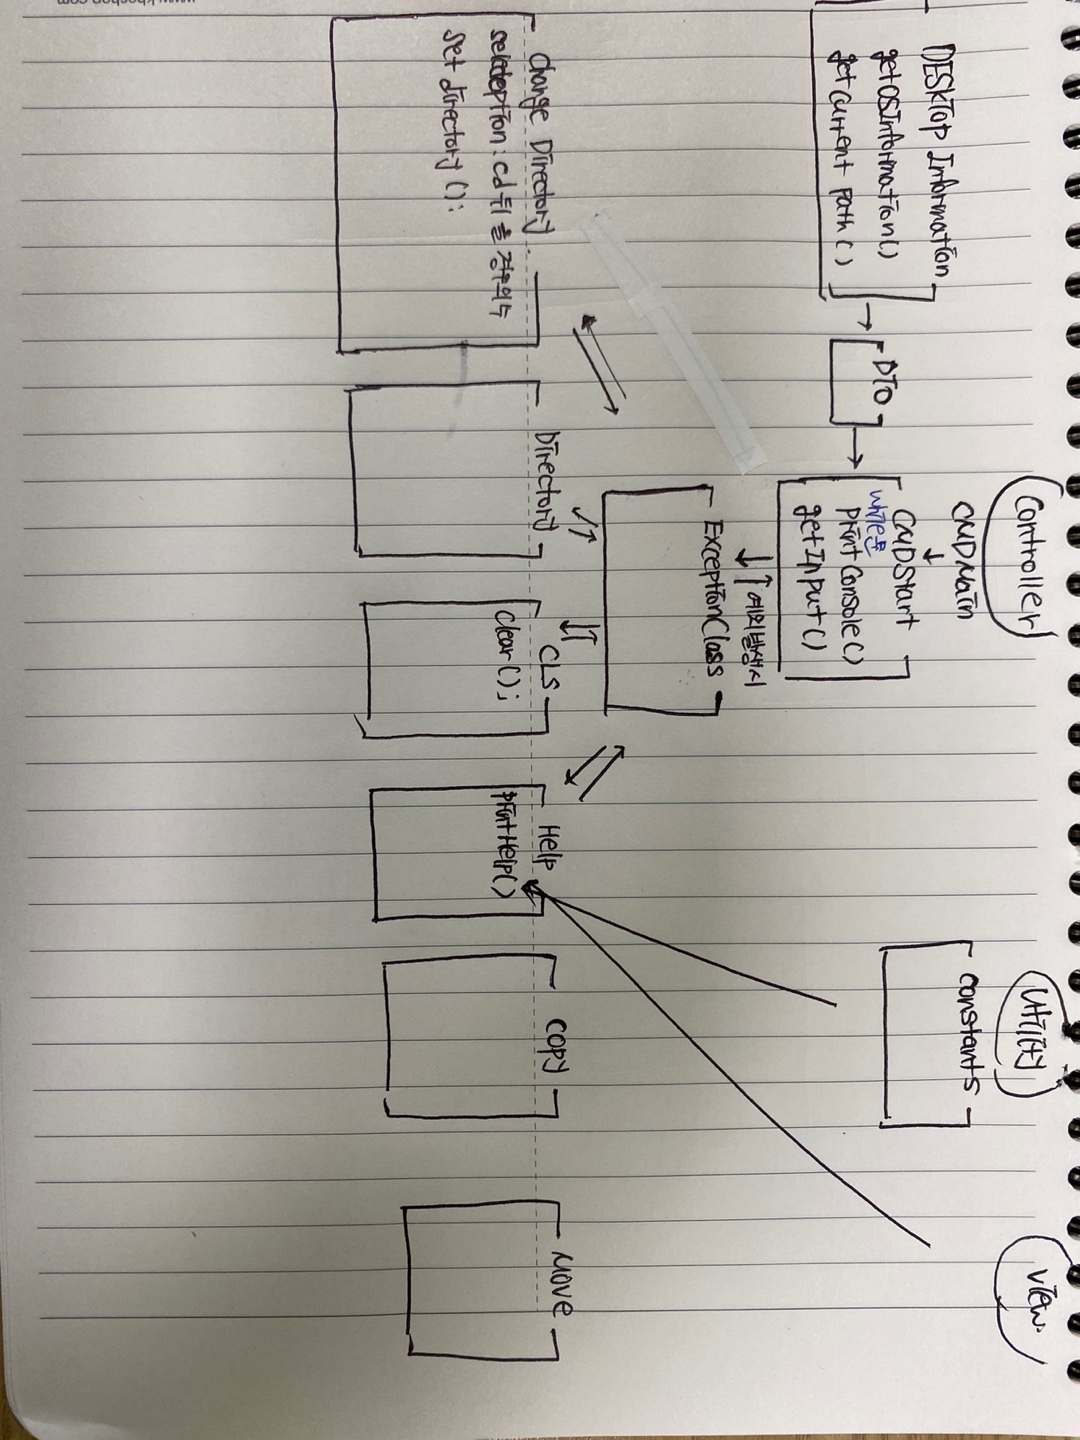 Controller
Utility
View.
CMDMain
constants
DESKTOP Information
getOSInformation()
getcurrent path()
DTO
CMDStart
while문
print Console()
getInput()
예외발생시
ExceptionClass
change Directory
Directory
CLS
Help
copy
Move
cd뒤 올 경우의수
set directory():
clear();
printHelp()